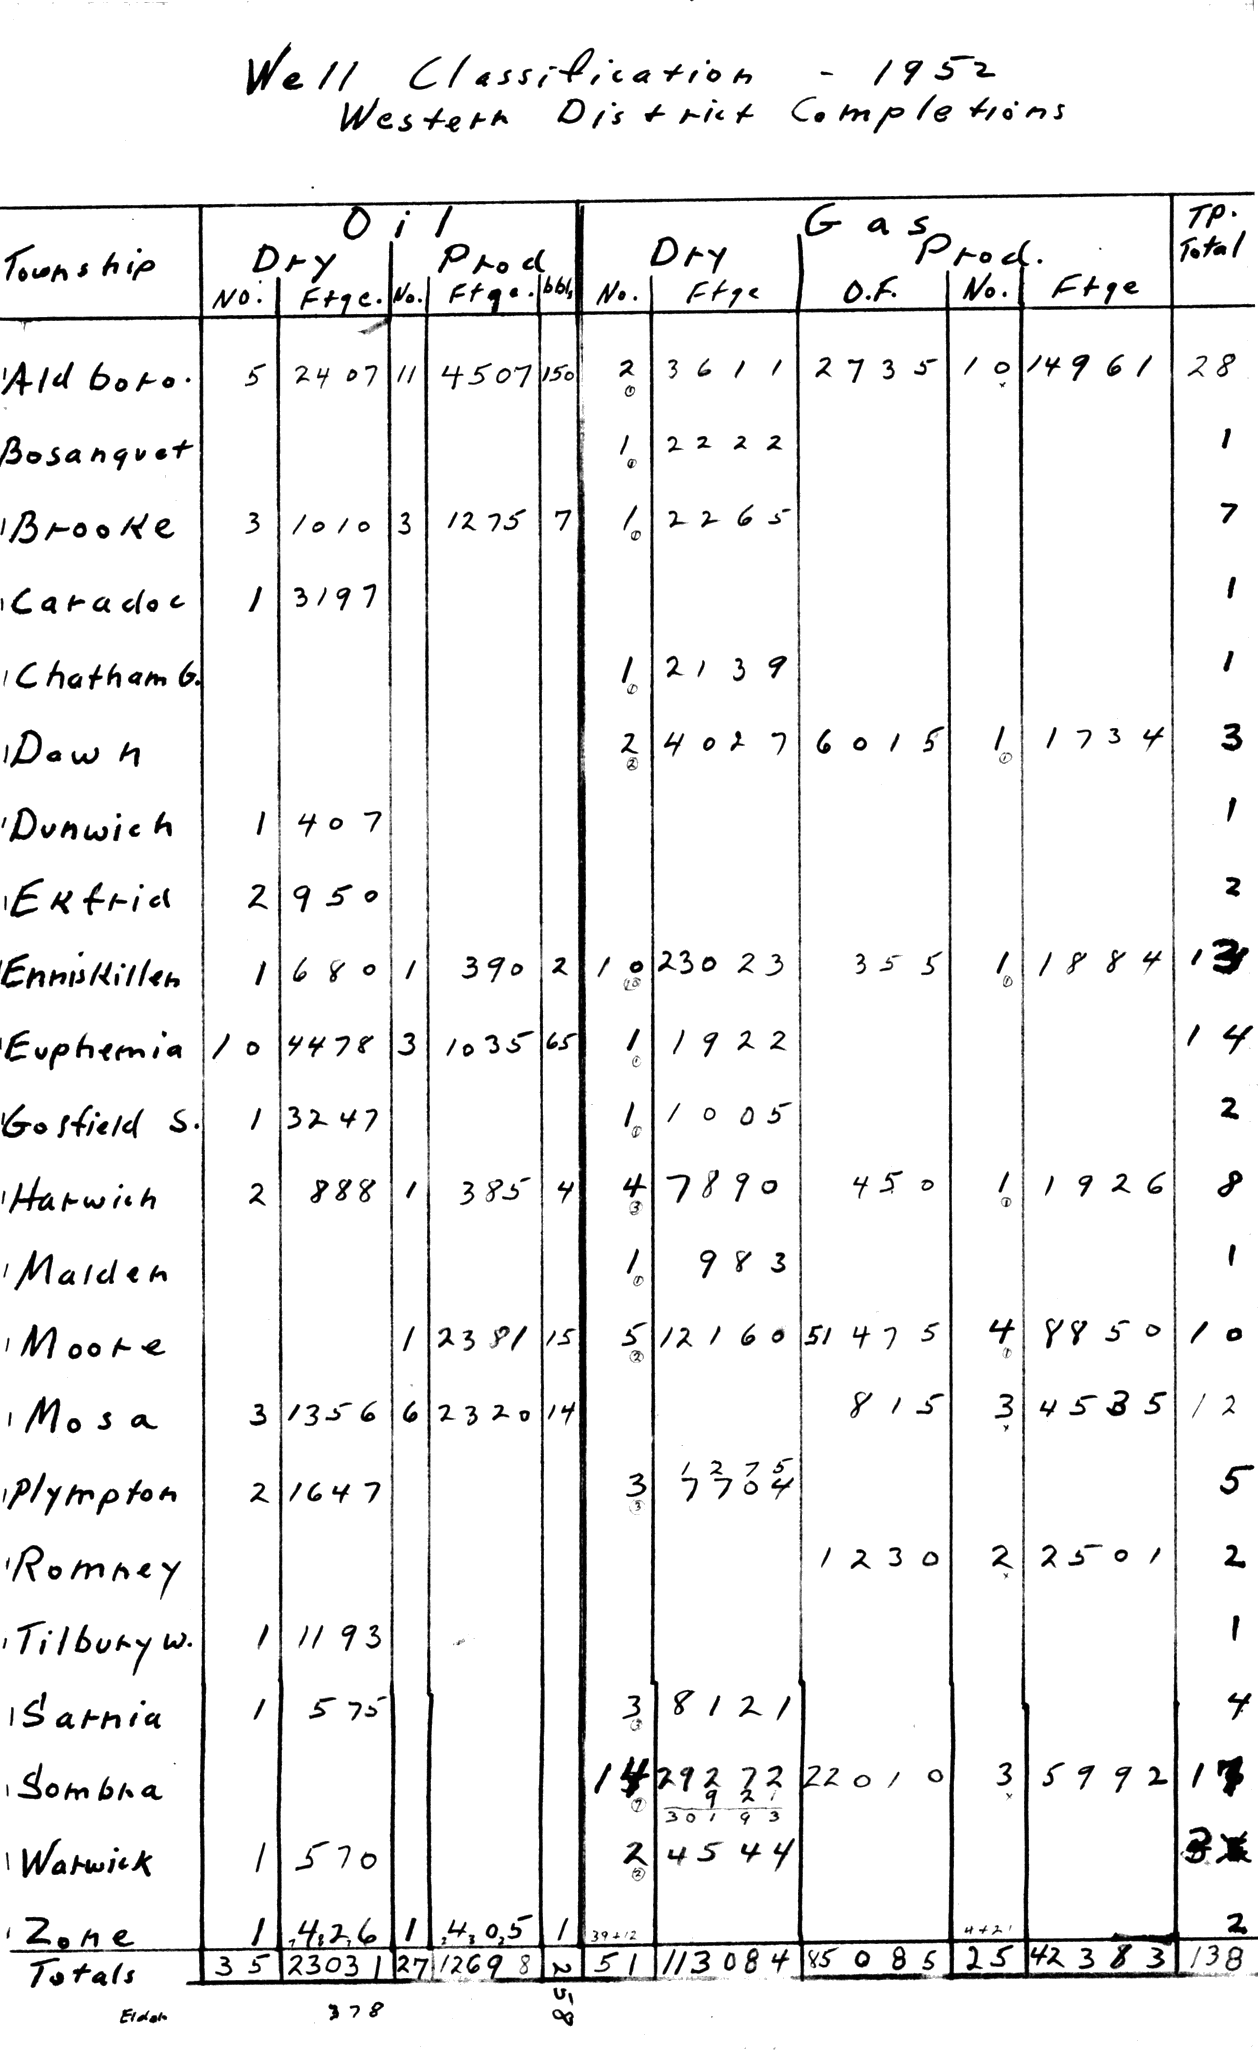 Well Classification - 1952
Western District Completions
Oil Gas TP.
Township Dry Prod Dry Prod. Total
No. Ftge. No. Ftge. bbls No. Ftge O.F. No. Ftge
Aldboro. 5 2407 11 4507 150 2 3611 2735 10 14961 28
① x
Bosanquet 1 2222 1
①
Brooke 3 1010 3 1275 7 1 2265 7
①
Caradoc 1 3197 1
Chatham G. 1 2139 1
①
Dawn 2 4027 6015 1 1734 3
② ①
Dunwich 1 407 1
Ekfrid 2 950 2
Enniskillen 1 680 1 390 2 10 23023 355 1 1884 13
①
Euphemia 10 4478 3 1035 65 1 1922 14
①
Gosfield S. 1 3247 1 1005 2
①
Harwich 2 888 1 385 4 4 7890 450 1 1926 8
③ ①
Malden 1 983 1
①
Moore 1 2381 15 5 12160 51475 4 8850 10
② ①
Mosa 3 1356 6 2320 14 815 3 4535 12
x
1275
Plympton 2 1647 3 7704 5
③
Romney 1230 2 2501 2
x
Tilbury W. 1 1193 1
Sarnia 1 575 3 8121 4
③
Sombra 14 29272 22010 3 5992 17
⑦ 921 x
30193
Warwick 1 570 2 4544 3
②
Zone 1 426 1 405 1 39+12 4+21 2
Totals 35 23031 27 12698 258 51 113084 85085 25 42383 138
378